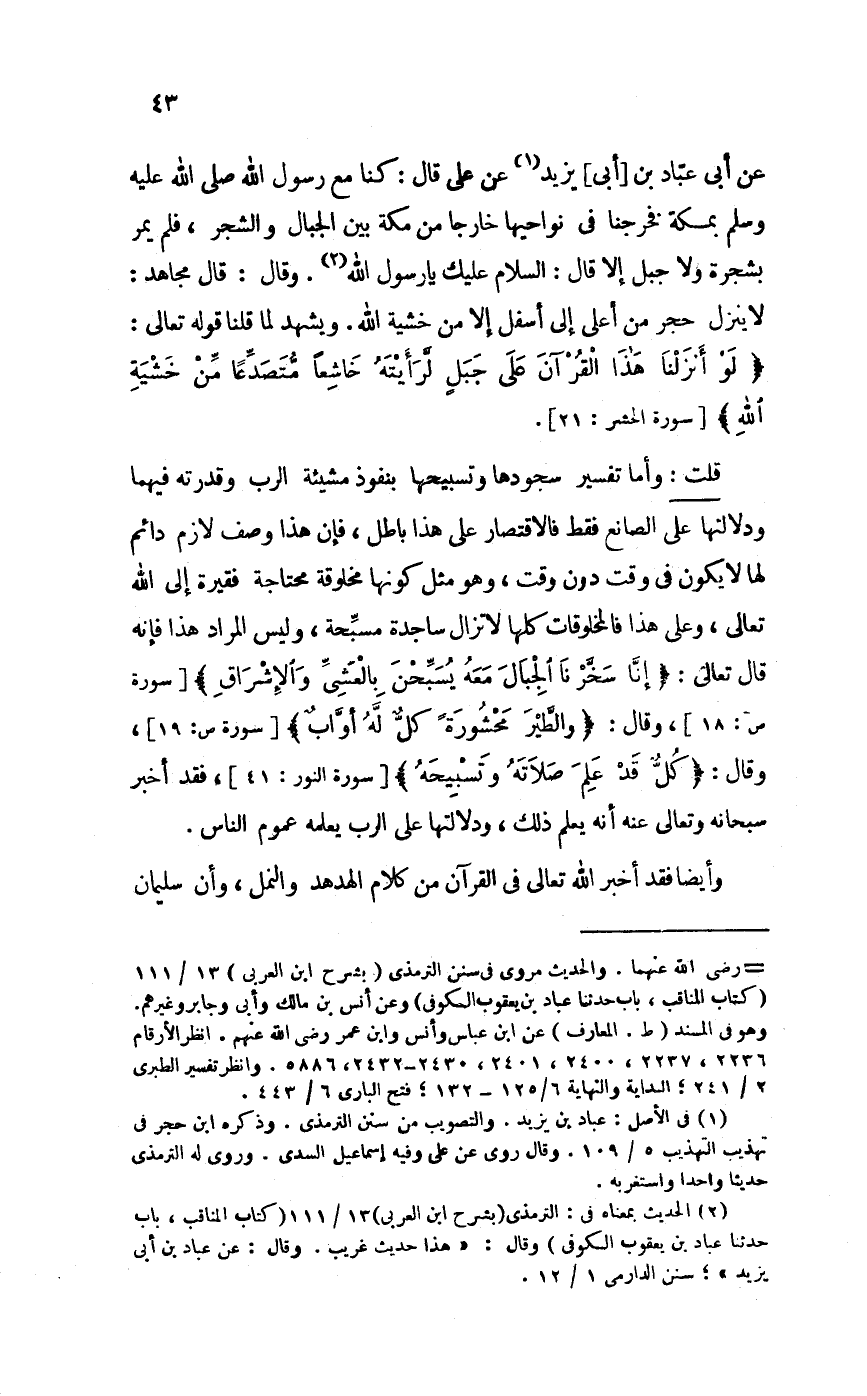 ٤٣
عن أبى عبّاد بن [أبى] يزيد(١) عن على قال : كنا مع رسول الله صلى الله عليه
وسلم بمكة فخرجنا فى نواحيها خارجا من مكة بين الجبال والشجر ، فلم يمر
بشجرة ولا جبل إلا قال : السلام عليك يارسول الله(٢) . وقال : قال مجاهد :
لاينزل حجر من أعلى إلى أسفل إلا من خشية الله . ويشهد لما قلنا قوله تعالى :
﴿ لَوْ أَنزَلْنَا هَٰذَا الْقُرْآنَ عَلَى جَبَلٍ لَّرَأَيْتَهُ خَاشِعاً مُّتَصَدِّعًا مِّنْ خَشْيَةِ
ٱللهِ ﴾ [ سورة الحشر : ٢١] .
قلت : وأما تفسير سجودها وتسبيحها بنفوذ مشيئة الرب وقدرته فيهما
ودلالتها على الصانع فقط فالاقتصار على هذا باطل ، فإن هذا وصف لازم دائم
لها لايكون فى وقت دون وقت ، وهو مثل كونها مخلوقة محتاجة فقيرة إلى الله
تعالى ، وعلى هذا فالمخلوقات كلها لاتزال ساجدة مسبِّحة ، وليس المراد هذا فإنه
قال تعالى : ﴿ إِنَّا سَخَّرْنَا ٱلْجِبَالَ مَعَهُ يُسَبِّحْنَ بِالْعَشِىِّ وَٱلْإِشْرَاقِ ﴾ [ سورة
صۤ : ١٨ ] ، وقال : ﴿ والطَّيْرَ مَحْشُورَةً كلٌّ لَّهُ أَوَّابٌ ﴾ [ سورة ص : ١٩] ،
وقال : ﴿ كُلٌّ قَدْ عَلِمَ صَلَاتَهُ وتَسْبِيحَهُ ﴾ [ سورة النور : ٤١ ] ، فقد أخبر
سبحانه وتعالى عنه أنه يعلم ذلك ، ودلالتها على الرب يعلمه عموم الناس .
وأيضا فقد أخبر الله تعالى فى القرآن من كلام الهدهد والنمل ، وأن سليمان
= رضى الله عنهما . والحديث مروى فى سنن الترمذى ( بشرح ابن العربى ) ١٣ / ١١١
(كتاب المناقب ، باب حدثنا عباد بن يعقوب الكوفى) وعن أنس بن مالك وأبى وجابر وغيرهم .
وهو فى المسند ( ط . المعارف ) عن ابن عباس وأنس وابن عمر رضى الله عنهم . انظر الأرقام
٢٢٣٦ ، ٢٢٣٧ ، ٢٤٠٠ ، ٢٤٠١ ، ٢٤٣٠–٢٤٣٢، ٥٨٨٦ . وانظر تفسير الطبرى
٢ / ٢٤١ ؛ البداية والنهاية ٦/ ١٢٥ – ١٣٢ ؛ فتح البارى ٦ / ٤٤٣ .
(١) فى الأصل : عباد بن يزيد . والتصويب من سنن الترمذى . وذكره ابن حجر فى
تهذيب التهذيب ٥ / ١٠٩ . وقال روى عن على وفيه إسماعيل السدى . وروى له الترمذى
حديثا واحدا واستغربه .
(٢) الحديث بمعناه فى : الترمذى(بشرح ابن العربى)١٣ / ١١١(كتاب المناقب ، باب
حدثنا عباد بن يعقوب الكوفى ) وقال : « هذا حديث غريب . وقال : عن عباد بن أبى
يزيد » ؛ سنن الدارمى ١ / ١٢ .